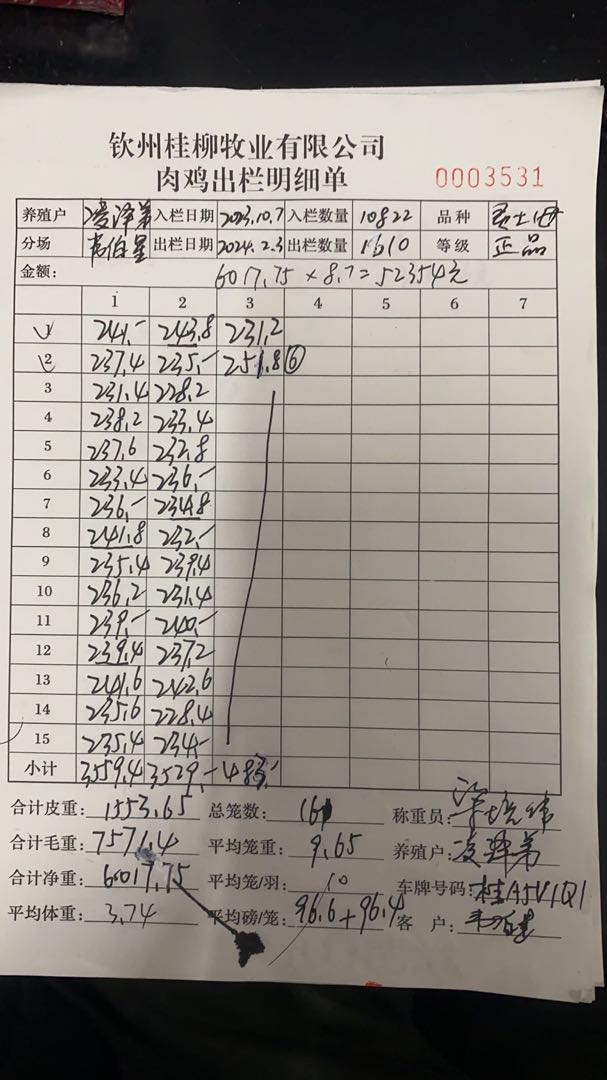 钦州桂柳牧业有限公司
肉鸡出栏明细单 0003531
养殖户 凌泽弟 入栏日期 2023.10.7 入栏数量 10822 品种
分场 韦伯星 出栏日期 2024.2.3 出栏数量 1610 等级 正品
金额: 6017.75×8.7=52354元
1 2 3 4 5 6 7
1 241.- 243.8 231.2
2 237.4 235.- 251.8 ⑥
3 231.4 228.2
4 238.2 233.4
5 237.6 232.8
6 233.4 236.-
7 236.- 234.8
8 241.8 232.-
9 235.4 239.4
10 236.2 231.4
11 239.- 240.-
12 239.4 237.2
13 241.6 242.6
14 235.6 228.4
15 235.4 234.-
小计 3559.4 3529.- 483.-
合计皮重: 1553.65 总笼数: 161 称重员:
合计毛重: 7571.4 平均笼重: 9.65 养殖户: 凌泽弟
合计净重: 6017.75 平均笼/羽: 10 车牌号码: 桂A5V1Q1
平均体重: 3.74 平均磅/笼: 96.6+96.4 客户: